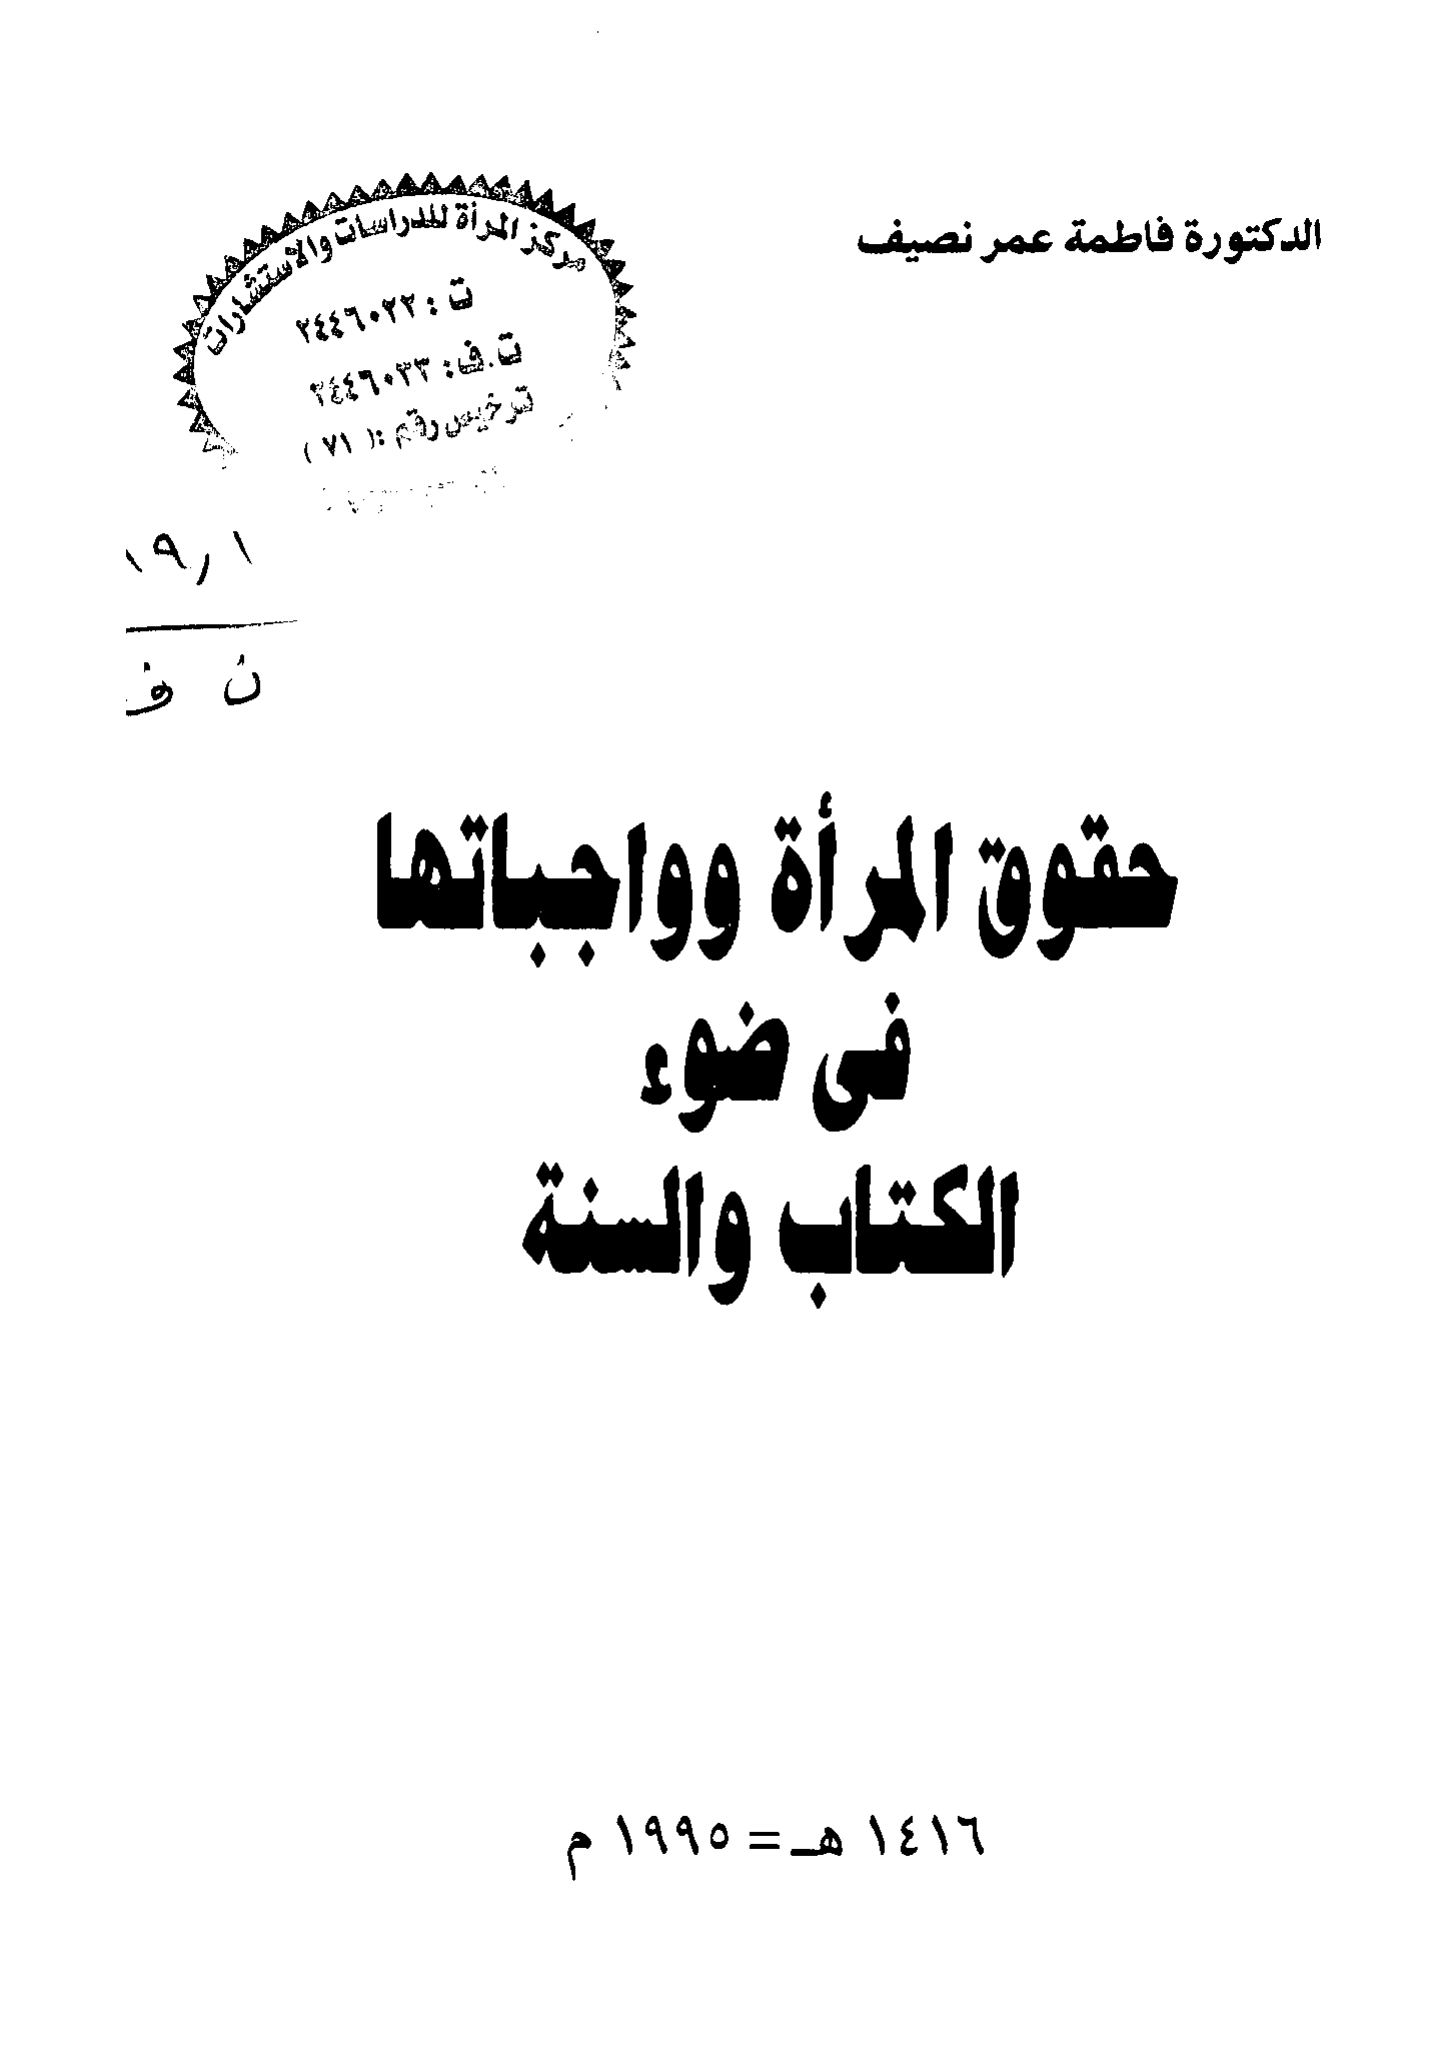 الدكتورة فاطمة عمر نصيف
مركز المرأة للدراسات والاستشارات
ت : ٢٤٤٦٠٢٢
ت.ف: ٢٤٤٦٠٣٣
ترخيس رقم :( ٧١ )
١٩٫١
ن ف
حقوق المرأة وواجباتها
فى ضوء
الكتاب والسنة
١٤١٦ هـ = ١٩٩٥ م